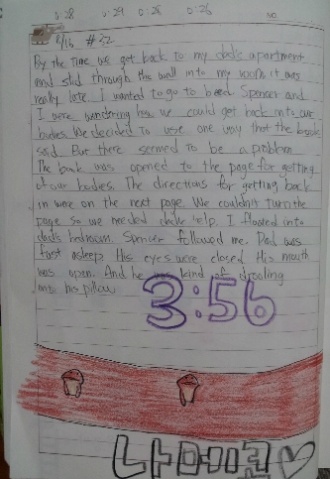 0:28 0:29 0:26 0:26
8/13 #32
By the time we got back to my dad's apartment
and slid through the wall into my room it was
really late. I wanted to go to bed. Spencer and
I were wondering how we could get back into our
bodies. We decided to use one way that the book
said. But there seemed to be a problem.
The book was opened to the page for getting
of our bodies. The directions for getting back
in were on the next page. We couldn't turn the
page so we needed dad's help. I floated into
dad's bedroom. Spencer followed me. Dad was
fast asleep. His eyes were closed. His mouth
was open. And he was kind of drooling
onto his pillow.
3:56